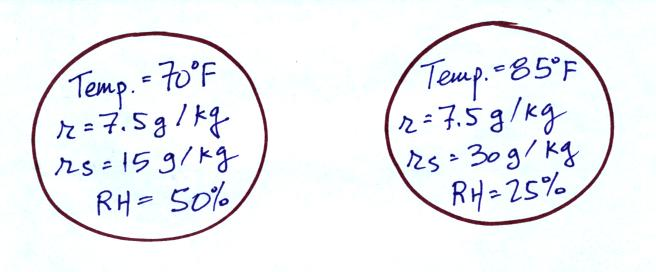 Temp. = 70°F
r = 7.5 g / kg
rs = 15 g / kg
RH = 50%
Temp. = 85°F
r = 7.5 g / kg
rs = 30 g / kg
RH = 25%